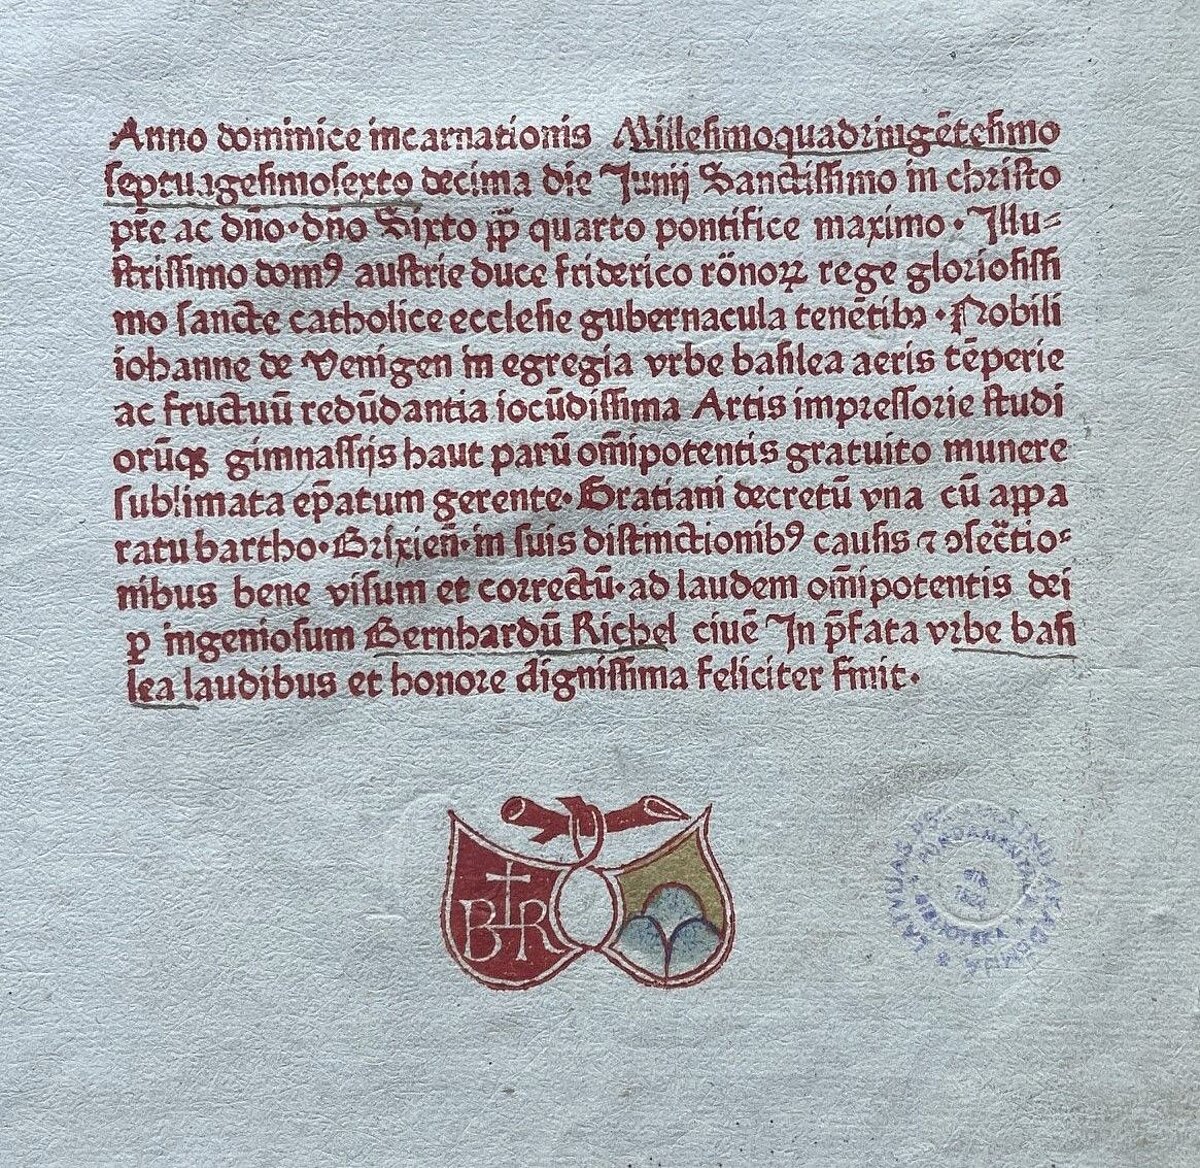 Anno dominice incarnationis Millesimoquadringētesimo
septuagesimosexto decima die Junij Sanctissimo in christo
pr̄e ac dn̄o·dn̄o Sixto pp̄ quarto pontifice maximo·Illu⸗
strissimo domꝰ austrie duce friderico rōnoꝝ rege gloriosissi
mo sancte catholice ecclesie gubernacula tenētibꝫ·Nobili
iohanne de Venigen in egregia vrbe basilea aeris tēperie
ac fructuū redūdantia iocūdissima Artis impressorie studi
orūqꝫ gimnassijs haut parū om̄ipotentis gratuito munere
sublimata ep̄atum gerente·Gratiani decretū vna cū appa
ratu bartho·Brixien̄·in suis distinctionibꝰ causis ⁊ ꝯsec̄tio⸗
nibus bene visum et correctū·ad laudem om̄ipotentis dei
ꝑ ingeniosum Bernhardū Richel ciuē In p̄fata vrbe basi
lea laudibus et honore dignissima feliciter finit·
B R
FUNDAMENTĀLĀ
BIBLIOTEKA
AKADĒMIJA